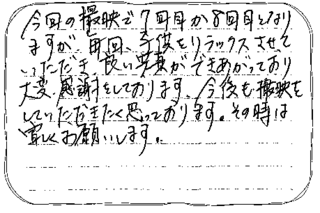 今回の撮映で7回目か8回目となり
ますが、毎回、子供をリラックスさせて
いただき、良い写真ができあがっており
大変、感謝をしております。今後も撮映を
していただきたく思っております。その時は
宜しくお願いします。